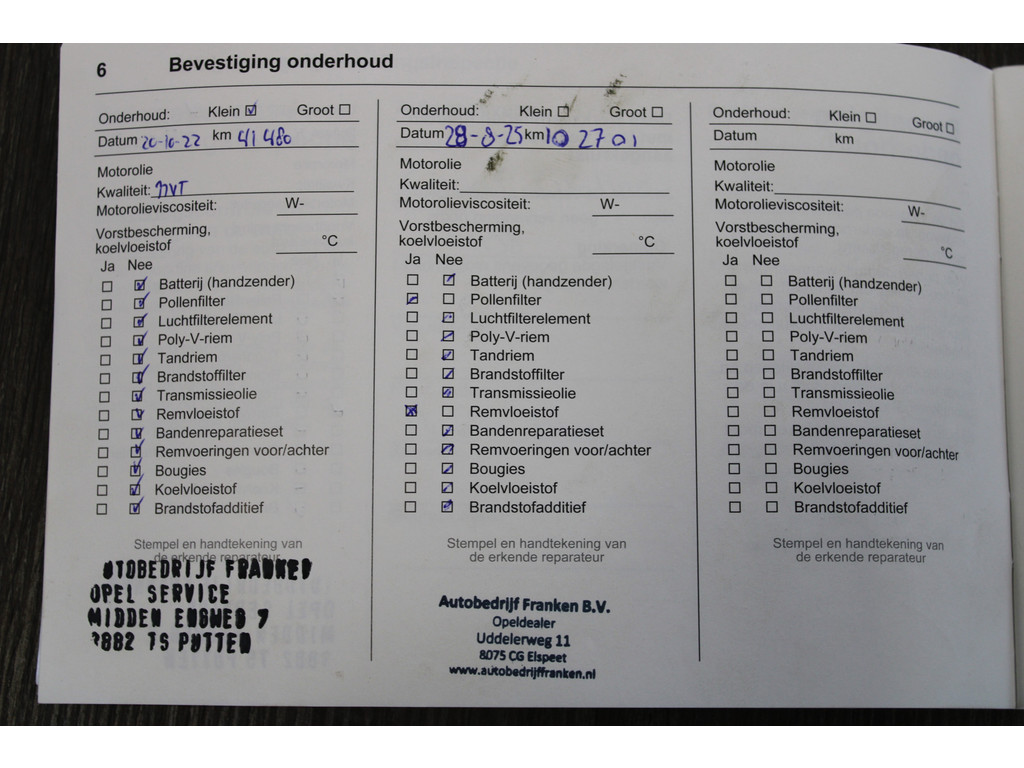 6 Bevestiging onderhoud
Onderhoud: Klein ☑ Groot ☐
Datum 20-10-22 km 41 480
Motorolie
Kwaliteit: NVT
Motorolieviscositeit: W-
Vorstbescherming,
koelvloeistof °C
Ja Nee
☐ ☑ Batterij (handzender)
☐ ☑ Pollenfilter
☐ ☑ Luchtfilterelement
☐ ☑ Poly-V-riem
☐ ☑ Tandriem
☐ ☑ Brandstoffilter
☐ ☑ Transmissieolie
☐ ☑ Remvloeistof
☐ ☑ Bandenreparatieset
☐ ☑ Remvoeringen voor/achter
☐ ☑ Bougies
☐ ☑ Koelvloeistof
☐ ☑ Brandstofadditief
Stempel en handtekening van
de erkende reparateur
UTOBEDRIJF FRANKEN
OPEL SERVICE
MIDDEN ENGWEG 7
3882 TS PUTTEN
Onderhoud: Klein ☐ Groot ☐
Datum 28-8-25 km 102701
Motorolie
Kwaliteit:
Motorolieviscositeit: W-
Vorstbescherming,
koelvloeistof °C
Ja Nee
☐ ☑ Batterij (handzender)
☑ ☐ Pollenfilter
☐ ☑ Luchtfilterelement
☐ ☑ Poly-V-riem
☐ ☑ Tandriem
☐ ☑ Brandstoffilter
☐ ☑ Transmissieolie
☒ ☐ Remvloeistof
☐ ☑ Bandenreparatieset
☐ ☑ Remvoeringen voor/achter
☐ ☑ Bougies
☐ ☑ Koelvloeistof
☐ ☑ Brandstofadditief
Stempel en handtekening van
de erkende reparateur
Autobedrijf Franken B.V.
Opeldealer
Uddelerweg 11
8075 CG Elspeet
www.autobedrijffranken.nl
Onderhoud: Klein ☐ Groot ☐
Datum km
Motorolie
Kwaliteit:
Motorolieviscositeit: W-
Vorstbescherming,
koelvloeistof °C
Ja Nee
☐ ☐ Batterij (handzender)
☐ ☐ Pollenfilter
☐ ☐ Luchtfilterelement
☐ ☐ Poly-V-riem
☐ ☐ Tandriem
☐ ☐ Brandstoffilter
☐ ☐ Transmissieolie
☐ ☐ Remvloeistof
☐ ☐ Bandenreparatieset
☐ ☐ Remvoeringen voor/achter
☐ ☐ Bougies
☐ ☐ Koelvloeistof
☐ ☐ Brandstofadditief
Stempel en handtekening van
de erkende reparateur